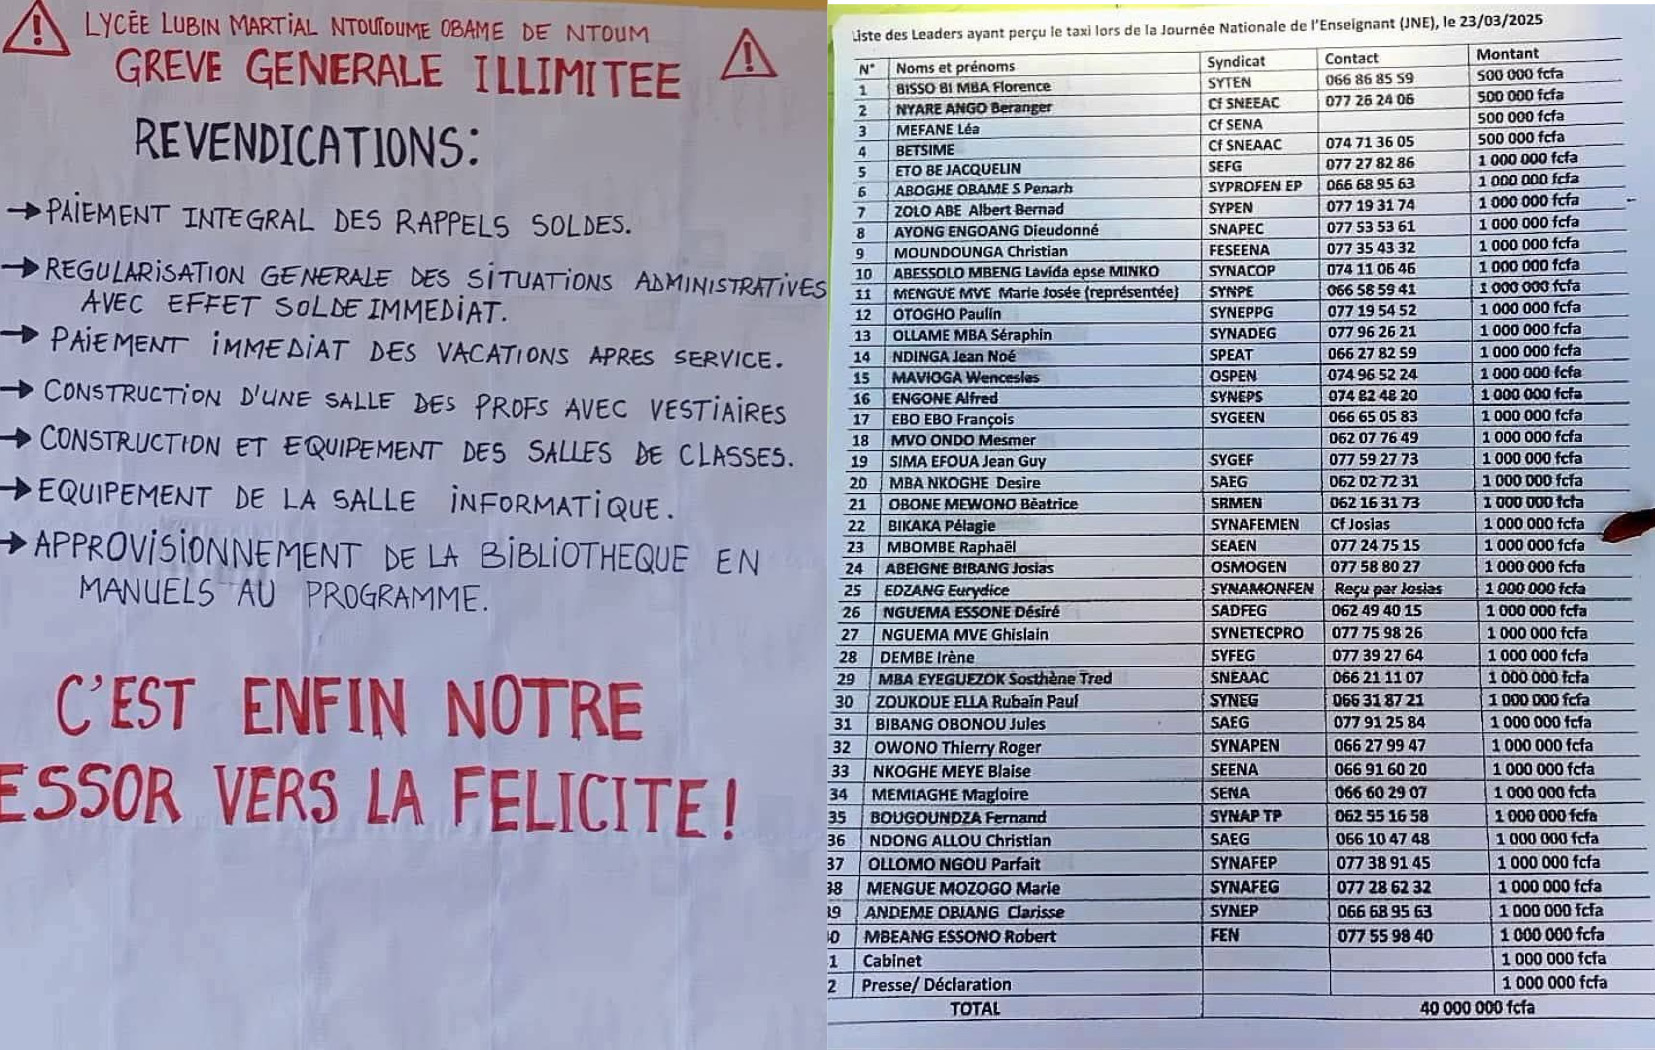 LYCÉE LUBIN MARTIAL NTOUTOUME OBAME DE NTOUM
GREVE GENERALE ILLIMITEE
REVENDICATIONS:
→ PAIEMENT INTEGRAL DES RAPPELS SOLDES.
→ REGULARISATION GENERALE DES SITUATIONS ADMINISTRATIVES
AVEC EFFET SOLDE IMMEDIAT.
→ PAIEMENT IMMEDIAT DES VACATIONS APRES SERVICE.
→ CONSTRUCTION D'UNE SALLE DES PROFS AVEC VESTIAIRES
→ CONSTRUCTION ET EQUIPEMENT DES SALLES DE CLASSES.
→ EQUIPEMENT DE LA SALLE INFORMATIQUE.
→ APPROVISIONNEMENT DE LA BIBLIOTHEQUE EN
MANUELS AU PROGRAMME.
C'EST ENFIN NOTRE
ESSOR VERS LA FELICITE!
Liste des Leaders ayant perçu le taxi lors de la Journée Nationale de l'Enseignant (JNE), le 23/03/2025
N° Noms et prénoms Syndicat Contact Montant
1 BISSO BI MBA Florence SYTEN 066 86 85 59 500 000 fcfa
2 NYARE ANGO Beranger Cf SNEEAC 077 26 24 06 500 000 fcfa
3 MEFANE Léa Cf SENA 500 000 fcfa
4 BETSIME Cf SNEAAC 074 71 36 05 500 000 fcfa
5 ETO BE JACQUELIN SEFG 077 27 82 86 1 000 000 fcfa
6 ABOGHE OBAME S Penarh SYPROFEN EP 066 68 95 63 1 000 000 fcfa
7 ZOLO ABE Albert Bernad SYPEN 077 19 31 74 1 000 000 fcfa
8 AYONG ENGOANG Dieudonné SNAPEC 077 53 53 61 1 000 000 fcfa
9 MOUNDOUNGA Christian FESEENA 077 35 43 32 1 000 000 fcfa
10 ABESSOLO MBENG Lavida epse MINKO SYNACOP 074 11 06 46 1 000 000 fcfa
11 MENGUE MVE Marie Josée (représentée) SYNPE 066 58 59 41 1 000 000 fcfa
12 OTOGHO Paulin SYNEPPG 077 19 54 52 1 000 000 fcfa
13 OLLAME MBA Séraphin SYNADEG 077 96 26 21 1 000 000 fcfa
14 NDINGA Jean Noé SPEAT 066 27 82 59 1 000 000 fcfa
15 MAVIOGA Wenceslas OSPEN 074 96 52 24 1 000 000 fcfa
16 ENGONE Alfred SYNEPS 074 82 48 20 1 000 000 fcfa
17 EBO EBO François SYGEEN 066 65 05 83 1 000 000 fcfa
18 MVO ONDO Mesmer 062 07 76 49 1 000 000 fcfa
19 SIMA EFOUA Jean Guy SYGEF 077 59 27 73 1 000 000 fcfa
20 MBA NKOGHE Desire SAEG 062 02 72 31 1 000 000 fcfa
21 OBONE MEWONO Bèatrice SRMEN 062 16 31 73 1 000 000 fcfa
22 BIKAKA Pélagie SYNAFEMEN Cf Josias 1 000 000 fcfa
23 MBOMBE Raphaël SEAEN 077 24 75 15 1 000 000 fcfa
24 ABEIGNE BIBANG Josias OSMOGEN 077 58 80 27 1 000 000 fcfa
25 EDZANG Eurydice SYNAMONFEN Reçu par Josias 1 000 000 fcfa
26 NGUEMA ESSONE Désiré SADFEG 062 49 40 15 1 000 000 fcfa
27 NGUEMA MVE Ghislain SYNETECPRO 077 75 98 26 1 000 000 fcfa
28 DEMBE Irène SYFEG 077 39 27 64 1 000 000 fcfa
29 MBA EYEGUEZOK Sosthène Tred SNEAAC 066 21 11 07 1 000 000 fcfa
30 ZOUKOUE ELLA Rubain Paul SYNEG 066 31 87 21 1 000 000 fcfa
31 BIBANG OBONOU Jules SAEG 077 91 25 84 1 000 000 fcfa
32 OWONO Thierry Roger SYNAPEN 066 27 99 47 1 000 000 fcfa
33 NKOGHE MEYE Blaise SEENA 066 91 60 20 1 000 000 fcfa
34 MEMIAGHE Magloire SENA 066 60 29 07 1 000 000 fcfa
35 BOUGOUNDZA Fernand SYNAP TP 062 55 16 58 1 000 000 fcfa
36 NDONG ALLOU Christian SAEG 066 10 47 48 1 000 000 fcfa
37 OLLOMO NGOU Parfait SYNAFEP 077 38 91 45 1 000 000 fcfa
38 MENGUE MOZOGO Marie SYNAFEG 077 28 62 32 1 000 000 fcfa
39 ANDEME OBIANG Clarisse SYNEP 066 68 95 63 1 000 000 fcfa
0 MBEANG ESSONO Robert FEN 077 55 98 40 1 000 000 fcfa
1 Cabinet 1 000 000 fcfa
2 Presse/ Déclaration 1 000 000 fcfa
TOTAL 40 000 000 fcfa